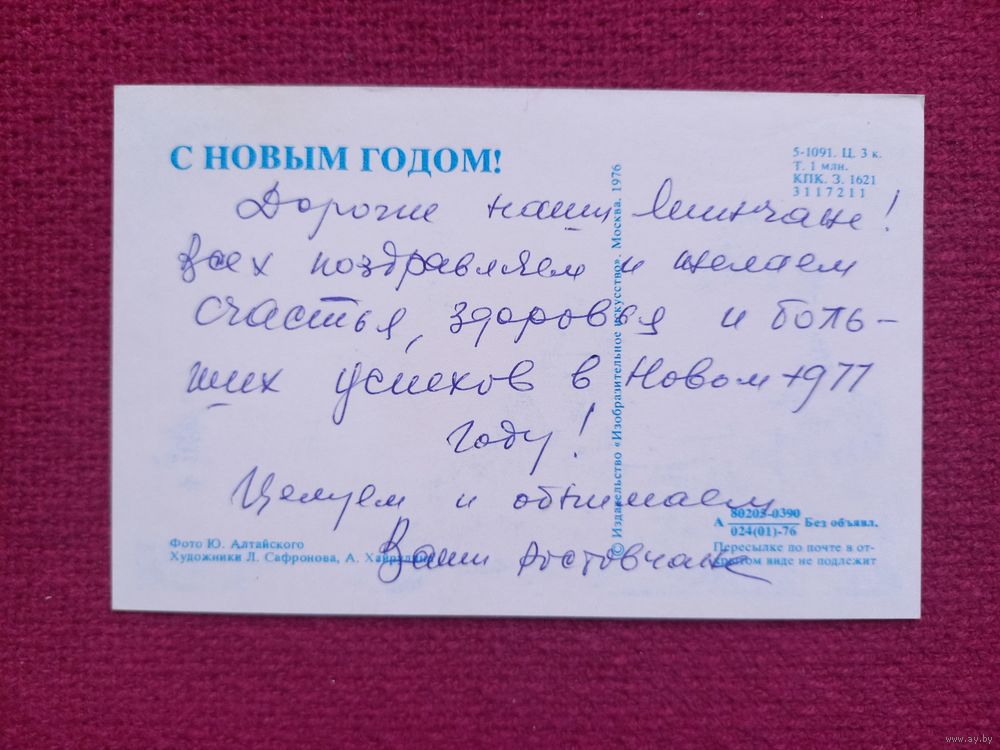 С НОВЫМ ГОДОМ!
5-1091. Ц. 3 к.
Т. 1 млн.
КПК. З. 1621
3117211
Дорогие наши Минчане!
Всех поздравляем и желаем
счастья, здоровья и боль-
ших успехов в Новом 1977
году!
Целуем и обнимаем
Ваши ростовчане
© Издательство «Изобразительное искусство». Москва. 1976
Фото Ю. Алтайского
Художники Л. Сафронова, А.
А 80205-0390 Без объявл.
024(01)-76
Пересылке по почте в от-
крытом виде не подлежит
www.ay.by